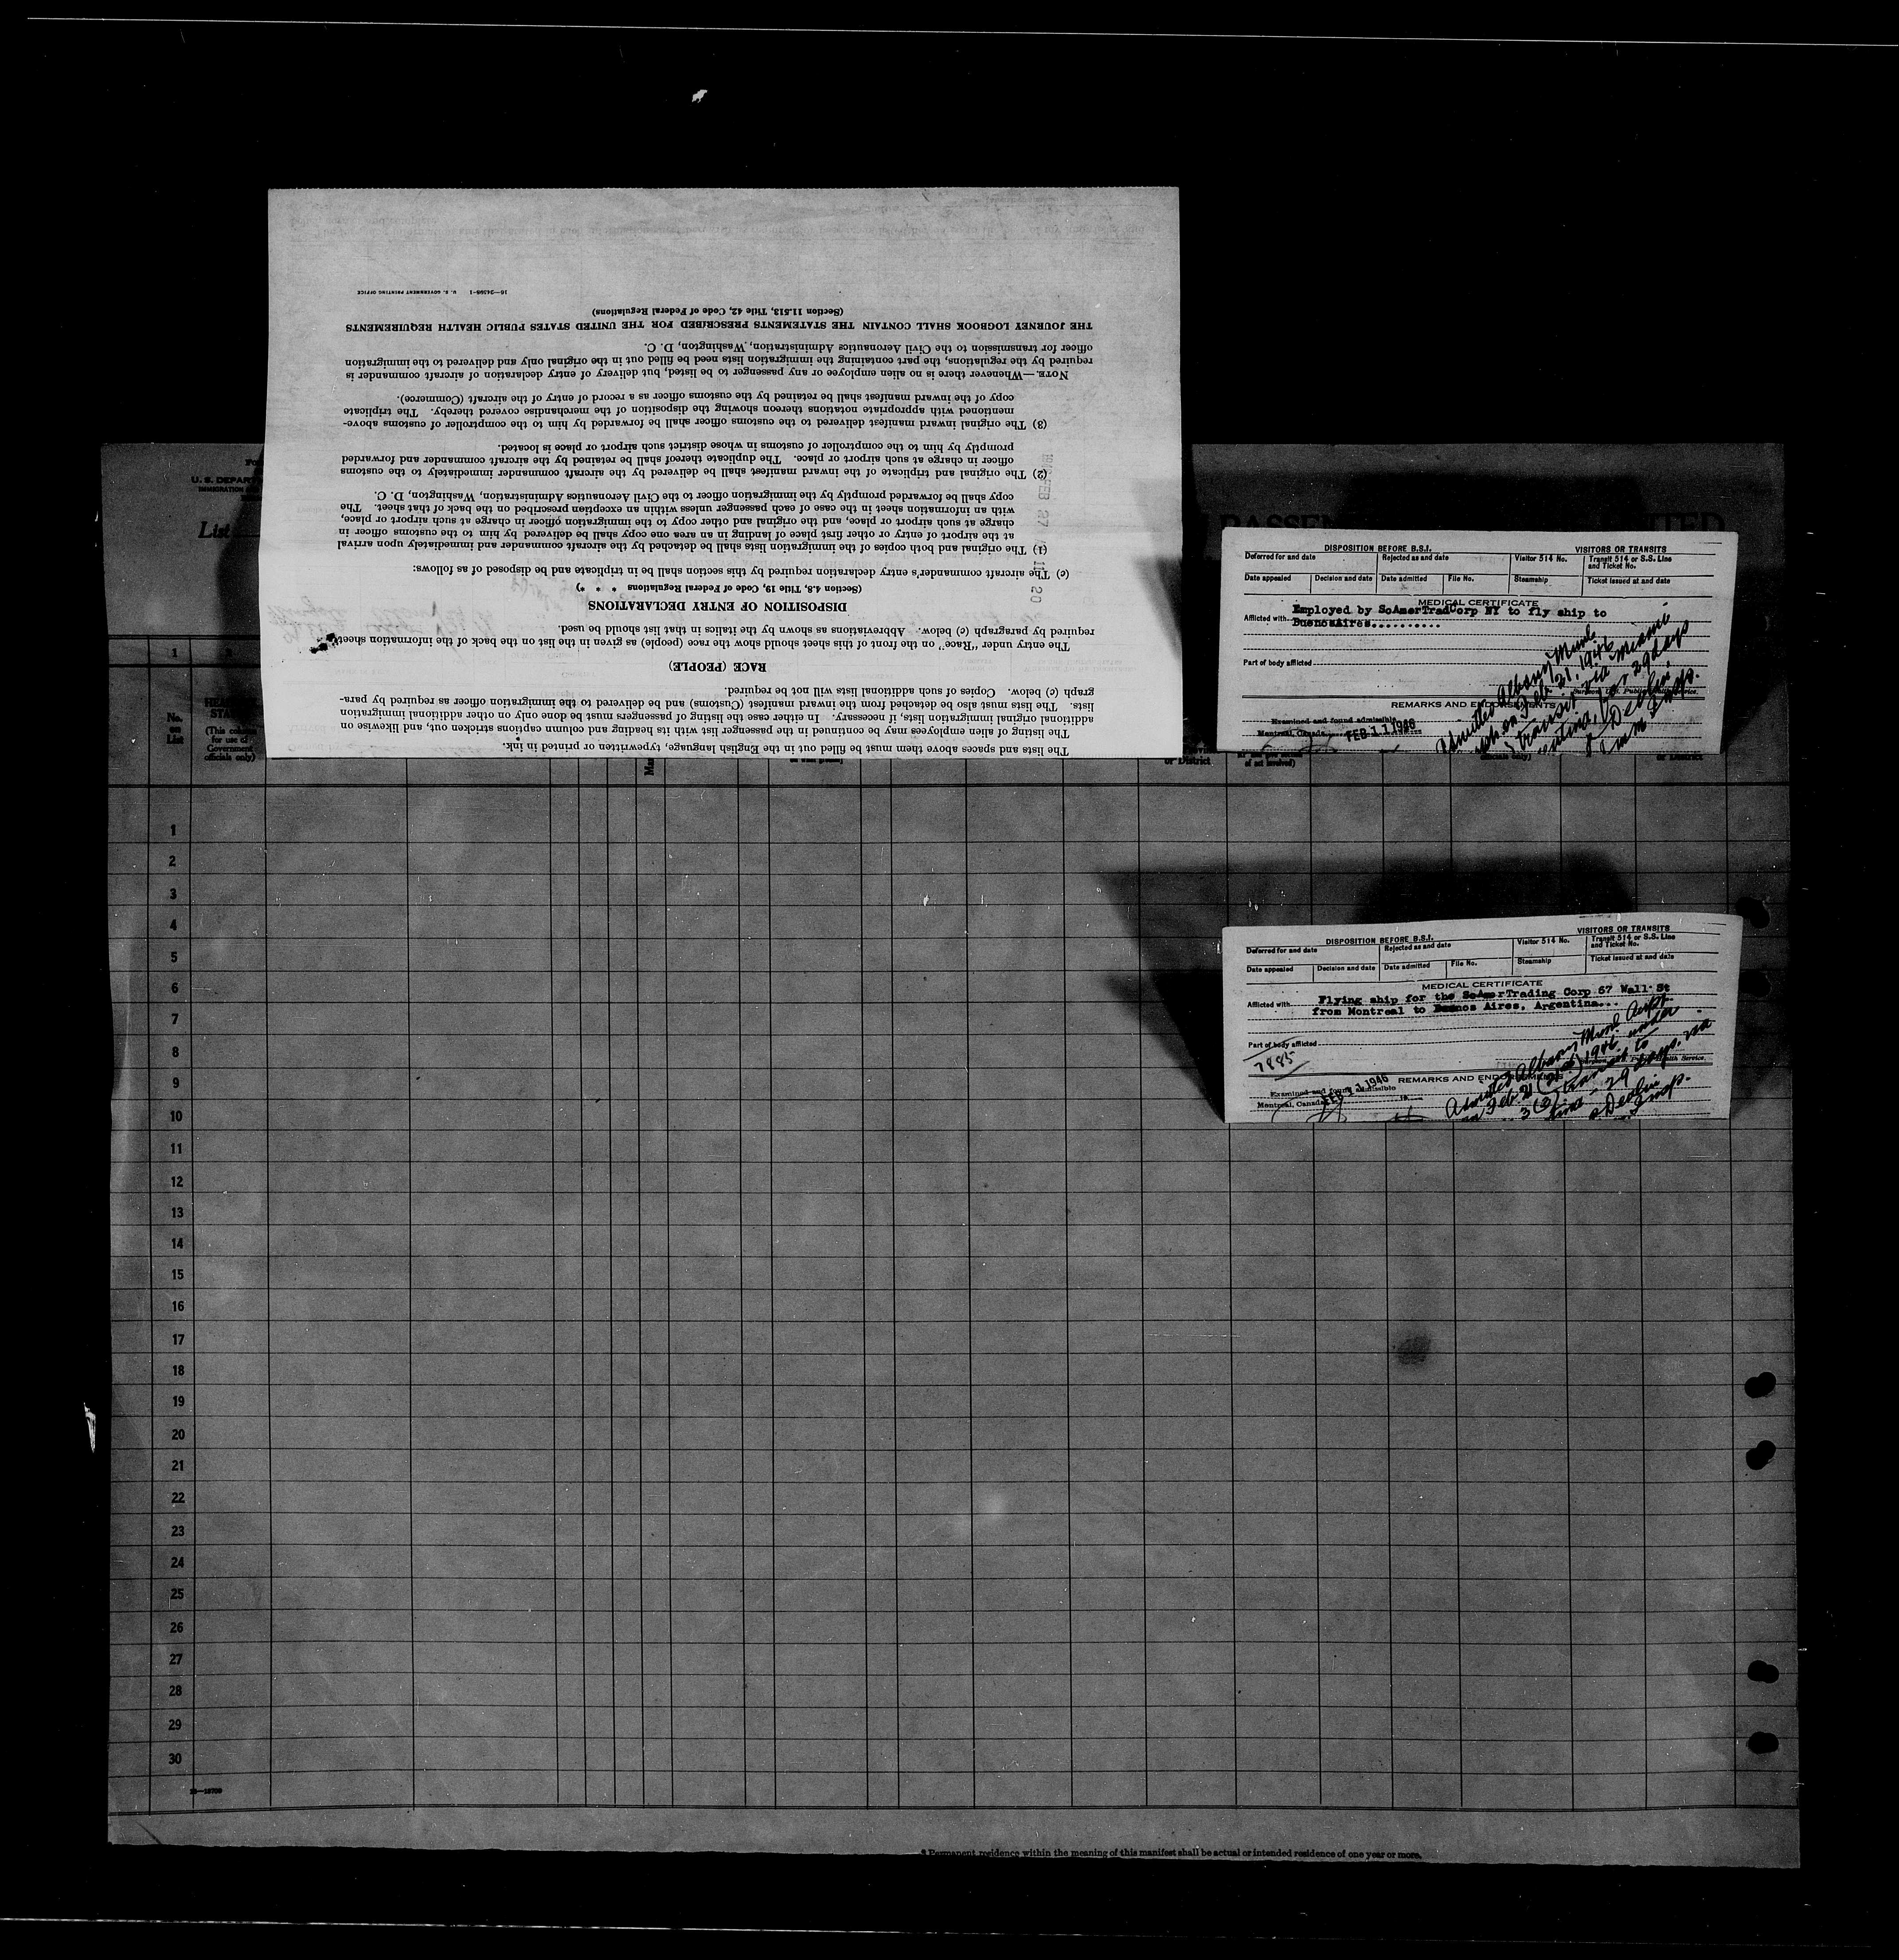 The lists and spaces above them must be filled out in the English language, typewritten or printed in ink.
The listing of alien employees may be continued in the passenger list with its heading and column captions stricken out, and likewise on
additional original immigration lists, if necessary. In either case the listing of passengers must be done only on other additional immigration
lists. The lists must also be detached from the inward manifest (Customs) and be delivered to the immigration officer as required by para-
graph (c) below. Copies of such additional lists will not be required.
RACE (PEOPLE)
The entry under "Race" on the front of this sheet should show the race (people) as given in the list on the back of the information sheet
required by paragraph (c) below. Abbreviations as shown by the italics in that list should be used.
DISPOSITION OF ENTRY DECLARATIONS
(Section 4.8, Title 19, Code of Federal Regulations * * *)
(c) The aircraft commander's entry declaration required by this section shall be in triplicate and be disposed of as follows:
(1) The original and both copies of the immigration lists shall be detached by the aircraft commander and immediately upon arrival
at the airport of entry or other first place of landing in an area one copy shall be delivered by him to the customs officer in
charge at such airport or place, and the original and other copy to the immigration officer in charge at such airport or place,
with an information sheet in the case of each passenger unless within an exception prescribed on the back of that sheet. The
copy shall be forwarded promptly by the immigration officer to the Civil Aeronautics Administration, Washington, D. C.
(2) The original and triplicate of the inward manifest shall be delivered by the aircraft commander immediately to the customs
officer in charge at such airport or place. The duplicate thereof shall be retained by the aircraft commander and forwarded
promptly by him to the comptroller of customs in whose district such airport or place is located.
(3) The original inward manifest delivered to the customs officer shall be forwarded by him to the comptroller of customs above-
mentioned with appropriate notations thereon showing the disposition of the merchandise covered thereby. The triplicate
copy of the inward manifest shall be retained by the customs officer as a record of entry of the aircraft (Commerce).
NOTE.—Whenever there is no alien employee or any passenger to be listed, but delivery of entry declaration of aircraft commander is
required by the regulations, the part containing the immigration lists need be filled out in the original only and delivered to the immigration
officer for transmission to the Civil Aeronautics Administration, Washington, D. C.
THE JOURNEY LOGBOOK SHALL CONTAIN THE STATEMENTS PRESCRIBED FOR THE UNITED STATES PUBLIC HEALTH REQUIREMENTS
(Section 11.513, Title 42, Code of Federal Regulations)
16—24598-1 U. S. GOVERNMENT PRINTING OFFICE
U. S. DEPAR
IMMIGRATION
List
1
No.
on
List
(This column
for use of
Government
officials only)
or District
of act involved)
officials only)
or District
DISPOSITION BEFORE B.S.I. VISITORS OR TRANSITS
Deferred for and date Rejected as and date Visitor 514 No. Transit 514 or S.S. Line
and Ticket No.
Date appealed Decision and date Date admitted File No. Steamship Ticket issued at and date
MEDICAL CERTIFICATE
Afflicted with Employed by SoAmerTradCorp NY to fly ship to
BuenosAires..........
Part of body afflicted
REMARKS AND ENDORSEMENTS
Examined and found admissible
Montreal, Canada FEB 11 1946
Admitted Albany Muni
on Feb. 21, 1946
transit via Miami
for 29 days
Devlin
Imm Insp.
DISPOSITION BEFORE B.S.I. VISITORS OR TRANSITS
Deferred for and date Rejected as and date Visitor 514 No. Transit 514 or S.S. Line
and Ticket No.
Date appealed Decision and date Date admitted File No. Steamship Ticket issued at and date
MEDICAL CERTIFICATE
Afflicted with Flying ship for the SoAmerTrading Corp 67 Wall St
from Montreal to Buenos Aires, Argentina...
Part of body afflicted
7885
REMARKS AND ENDORSEMENTS
Examined and found admissible
Montreal, Canada FEB 11 1946
Admitted Albany Muni Airpt
on Feb 21 1946 under
3(3) transit to
29 days via
Devlin
Insp.
1
2
3
4
5
6
7
8
9
10
11
12
13
14
15
16
17
18
19
20
21
22
23
24
25
26
27
28
29
30
* Permanent residence within the meaning of this manifest shall be actual or intended residence of one year or more.